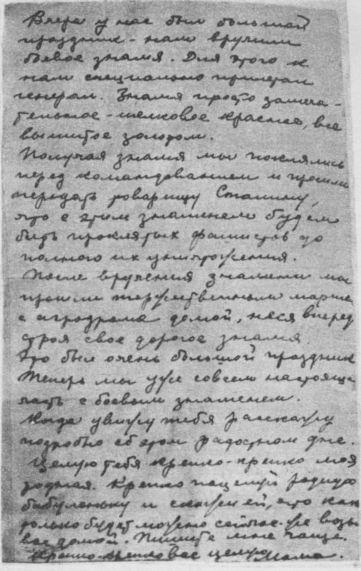 Вчера у нас был большой
праздник - нам вручили
боевое знамя. Для этого к
нам специально прилетал
генерал. Знамя просто замеча-
тельное - шелковое красное, все
вышитое золотом.
Получая знамя мы поклялись
перед командованием и просили
передать товарищу Сталину,
что с этим знаменем будем
бить проклятых фашистов до
полного их уничтожения.
После вручения знамени мы
прошли торжественным маршем
с аэродрома домой, неся вперед
строя свое дорогое знамя
Это был очень большой праздник
Теперь мы уже совсем настоящая
часть с боевым знаменем.
Когда увижу тебя расскажу
подробно об этом радостном дне.
Целую тебя крепко-крепко моя
родная. Крепко поцелуй родную
бабуленьку и скажи ей, что как
только будет можно сейчас-же возьму
вас домой. Пишите мне чаще.
Крепко-крепко вас целую Мама.